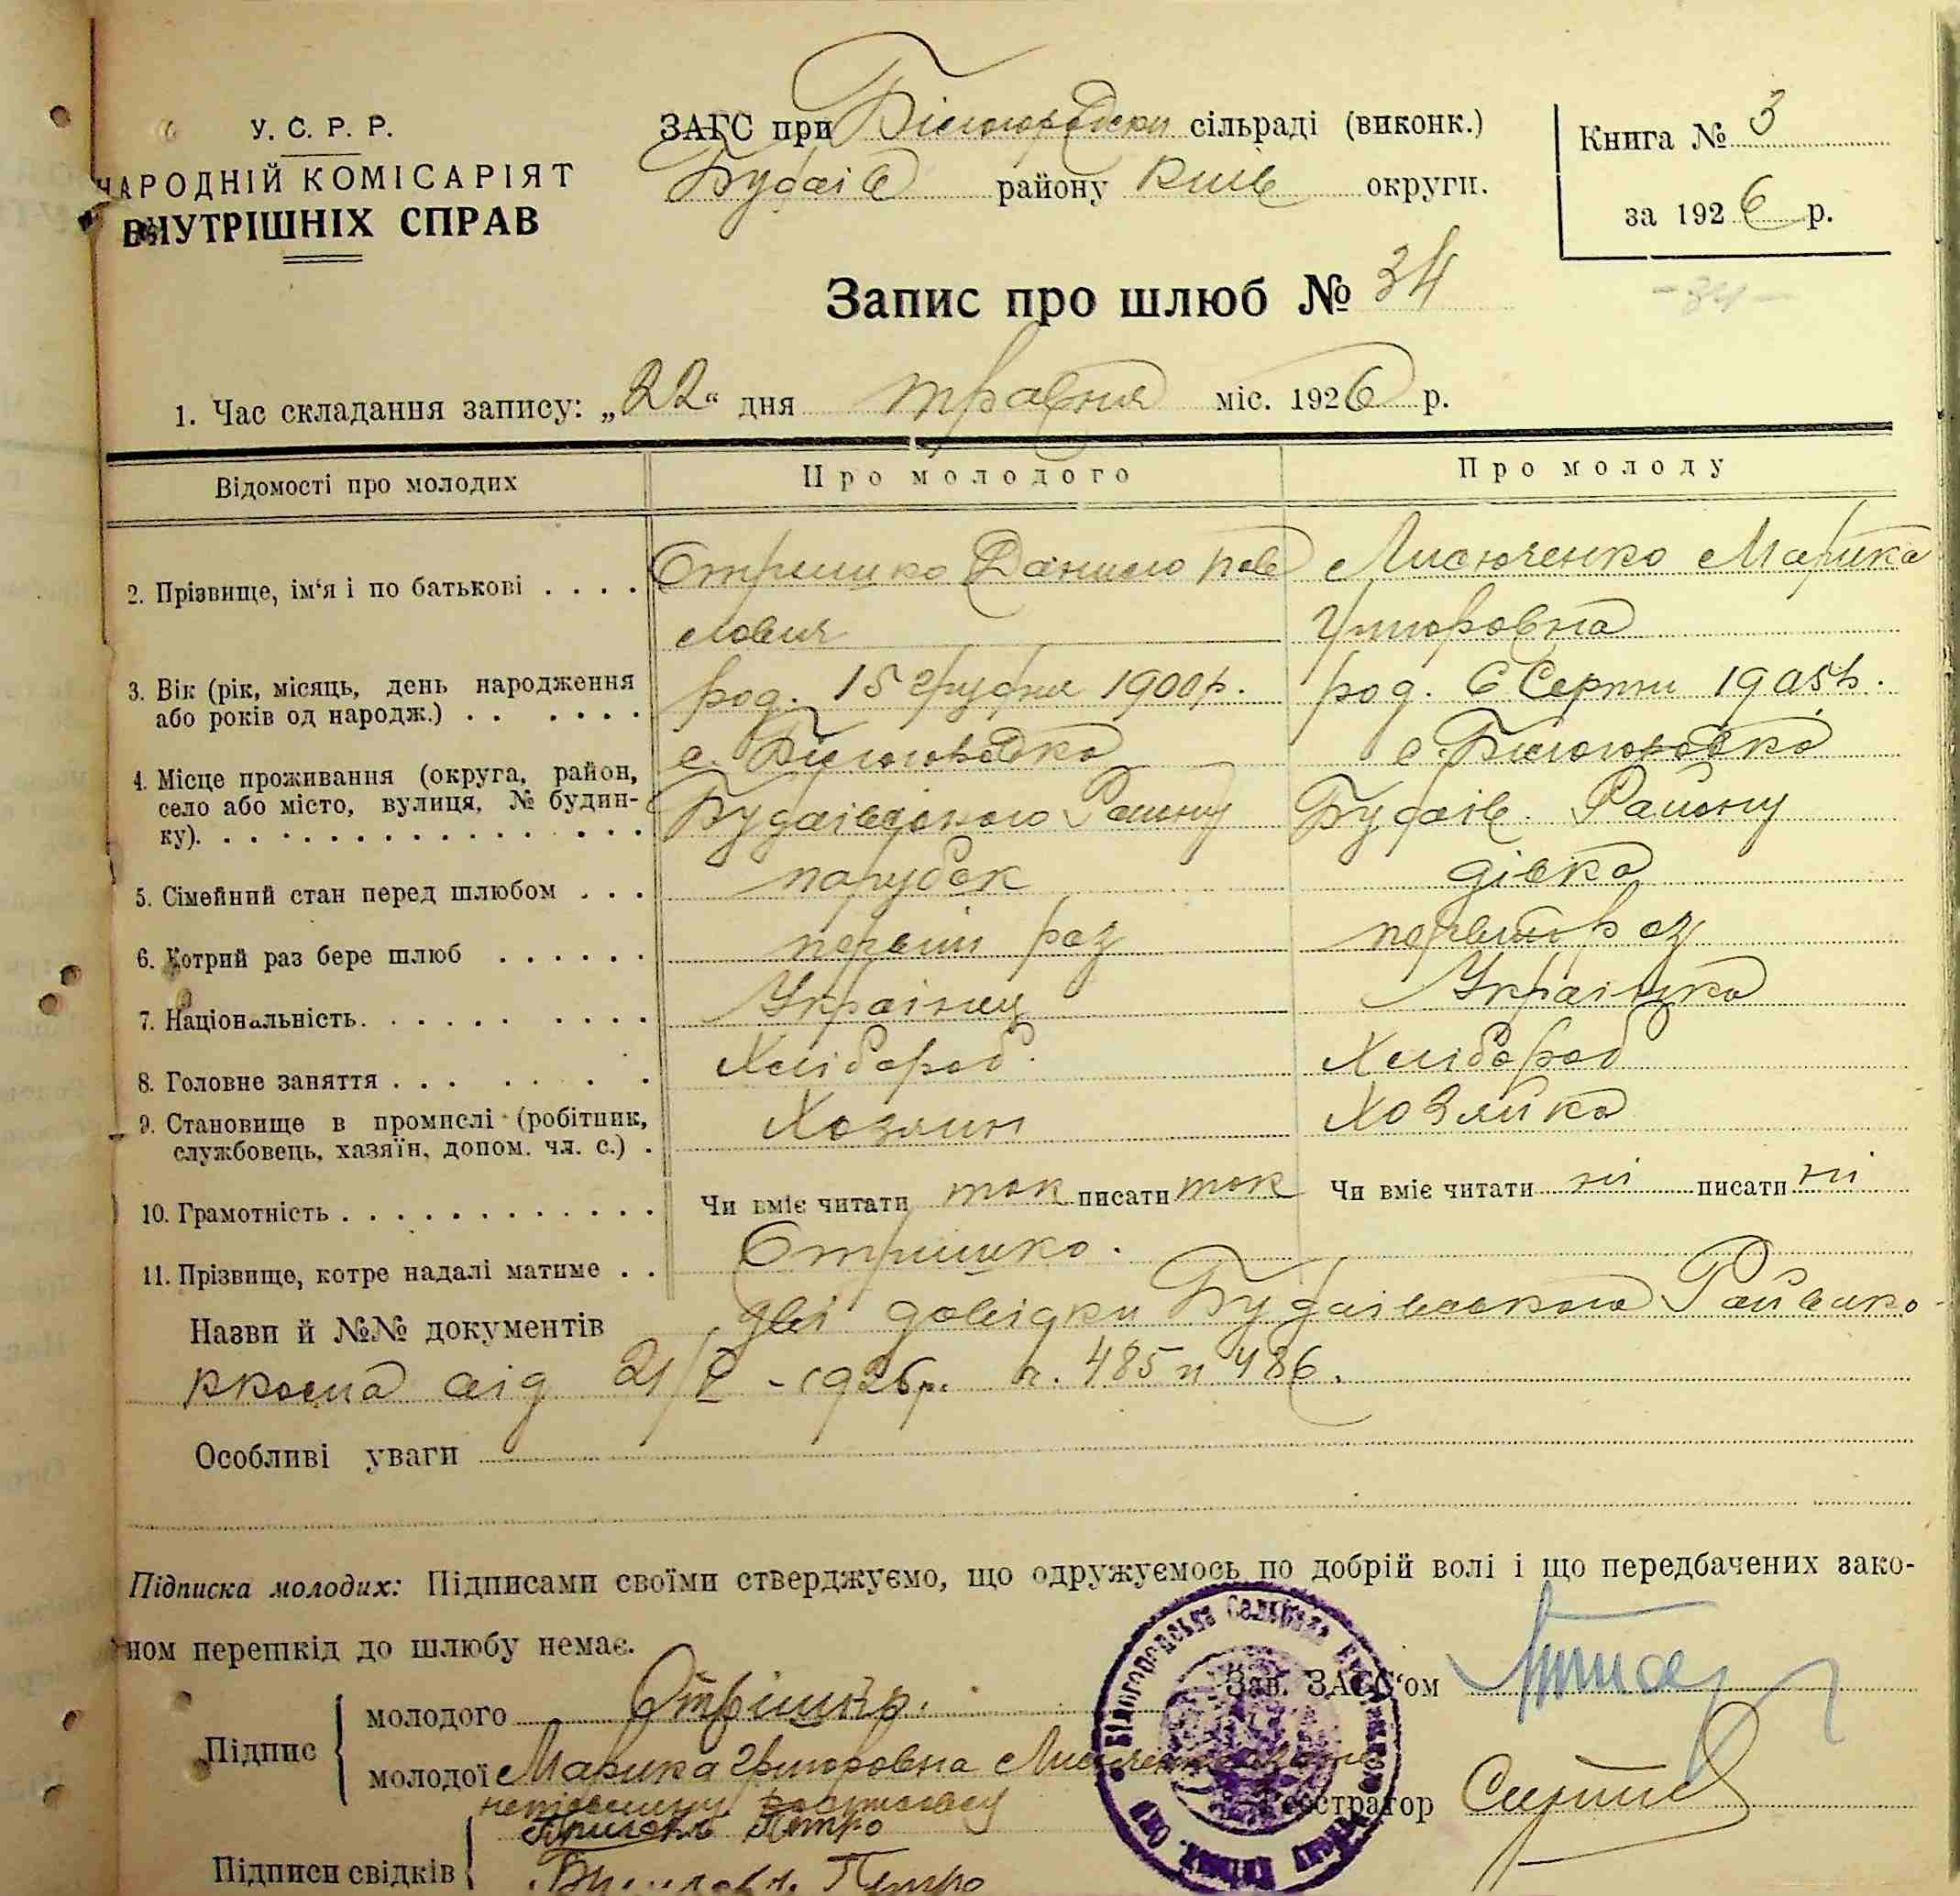 У. С. Р. Р.
НАРОДНІЙ КОМІСАРІЯТ
ВНУТРІШНІХ СПРАВ
ЗАГС при Білогородски сільраді (виконк.)
Будаів району Київ округи.
Книга № 3
за 1926 р.
Запис про шлюб № 34
- 34 -
1. Час складання запису: „22“ дня травня міс. 1926 р.
Відомості про молодих
Про молодого
Про молоду
2. Прізвище, ім‘я і по батькові . . . .
Стришко Данило Пав
лович
Марика
Григоровна
3. Вік (рік, місяць, день народження
або років од народж.) . . . . . .
род. 15 грудня 1900 р.
род. 6 Серпня 1905 р.
4. Місце проживання (округа, район,
село або місто, вулиця, № будин-
ку). . . . . . . . . . . . . . . .
с. Білогородка
Будаівського Району
с. Білогородка
Будаів. Району
5. Сімейний стан перед шлюбом . . .
парубок
дівка
6. Котрий раз бере шлюб . . . . . .
первий раз
первий раз
7. Національність. . . . . . . . . .
Українец
Українка
8. Головне заняття . . . . . . .
Хлібороб.
Хлібороб
9. Становище в промислі (робітник,
службовець, хазяїн, допом. чл. с.) .
Хозяин
Хозяйка
10. Грамотність . . . . . . . . . . . .
Чи вміє читати так писати так
Чи вміє читати ні писати ні
11. Прізвище, котре надалі матиме . .
Стришко.
Назви й №№ документів дві довідки Будаівського Райвико-
від 21/V - 1926 р. н. 485 и 486.
Особливі уваги
Підписка молодих: Підписами своїми стверджуємо, що одружуємось по добрій волі і що передбачених зако-
ном перешкід до шлюбу немає.
Підпис
молодого Стрішко.
молодої Марика Григоровна
Зав. ЗАГС‘ом
Реєстратор
Підписи свідків
Петро
Петро